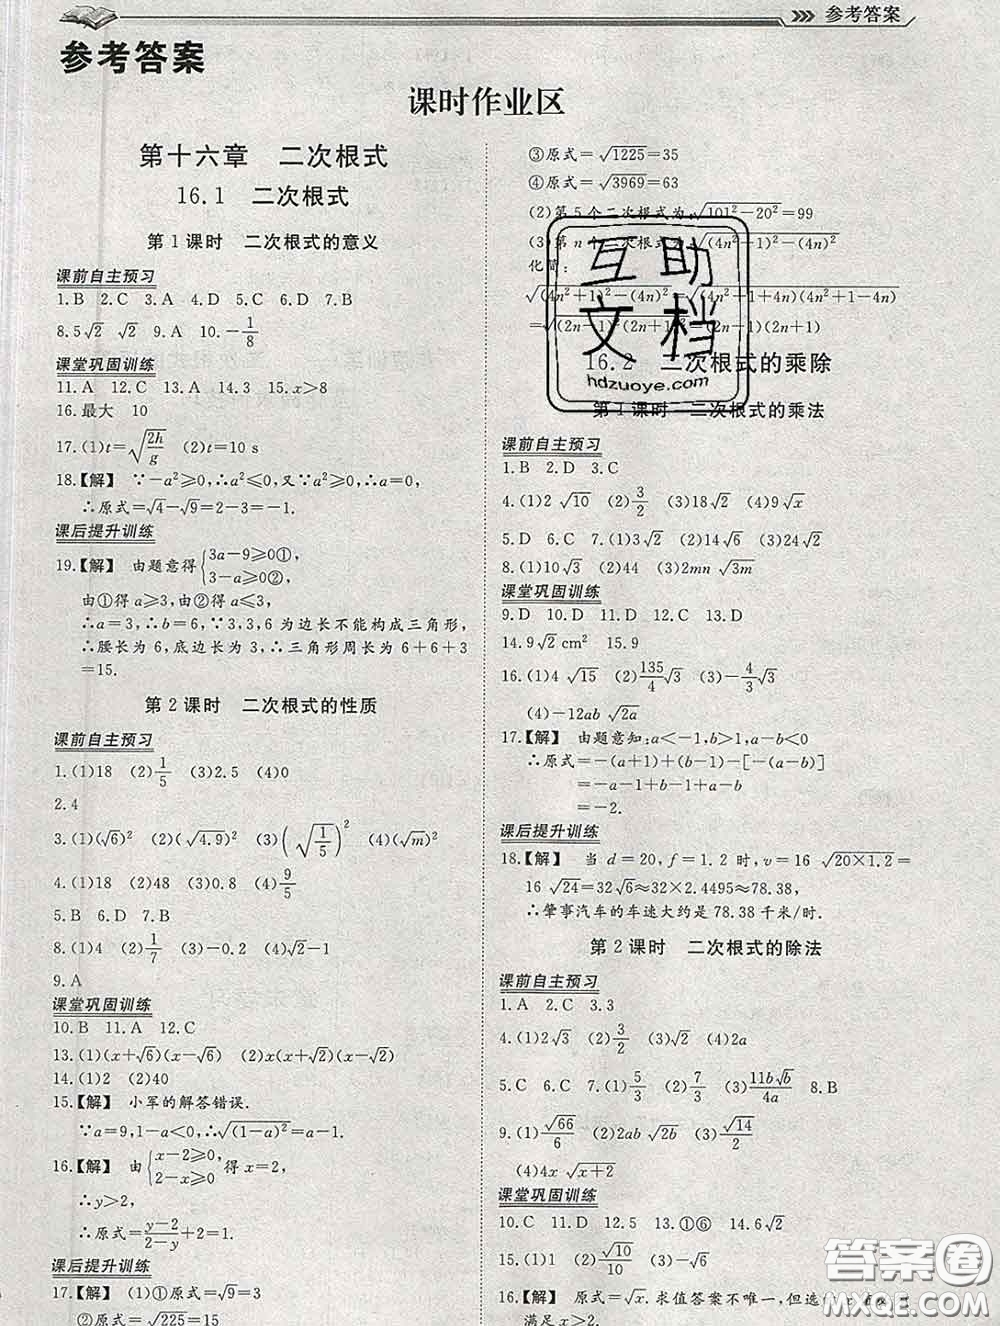 参考答案
参考答案
课时作业区
第十六章 二次根式
16.1 二次根式
第1课时 二次根式的意义
课前自主预习
1.B 2.C 3.A 4.D 5.C 6.D 7.B
8.5√2 √2 9.A 10.-1/8
课堂巩固训练
11.A 12.C 13.A 14.3 15.x>8
16.最大 10
17.(1)t=√(2h/g) (2)t=10 s
18.【解】 ∵-a²≥0,∴a²≤0,又∵a²≥0,∴a=0,
∴原式=√4-√9=2-3=-1.
课后提升训练
19.【解】 由题意得{3a-9≥0①,
3-a≥0②,
由①得a≥3,由②得a≤3,
∴a=3,∴b=6,∵3,3,6为边长不能构成三角形,
∴腰长为6,底边长为3,∴三角形周长为6+6+3
=15.
第2课时 二次根式的性质
课前自主预习
1.(1)18 (2)1/5 (3)2.5 (4)0
2.4
3.(1)(√6)² (2)(√4.9)² (3)(√(1/5))² (4)(√m)²
4.(1)18 (2)48 (3)0.9 (4)9/5
5.B 6.D 7.B
8.(1)4 (2)1/7 (3)-0.2 (4)√2-1
9.A
课堂巩固训练
10.B 11.A 12.C
13.(1)(x+√6)(x-√6) (2)x(x+√2)(x-√2)
14.(1)2 (2)40
15.【解】 小军的解答错误.
∵a=9,1-a<0,∴√(1-a)²=a-1.
16.【解】 由{x-2≥0,
2-x≥0, 得x=2,
∴y>2,
∴原式=(y-2)/(2-y)+2=-1+2=1.
课后提升训练
17.【解】 (1)①原式=√9=3
②原式=√225=15
③原式=√1225=35
④原式=√3969=63
(2)第5个二次根式为√(101²-20²)=99
(3)第n个二次根式为√((4n²+1)²-(4n)²)
化简:
√((4n²+1)²-(4n)²)=√((4n²+1+4n)(4n²+1-4n))
=√((2n-1)²(2n+1)²)=(2n-1)(2n+1)
16.2 二次根式的乘除
第1课时 二次根式的乘法
课前自主预习
1.B 2.D 3.C
4.(1)2√10 (2)3/2 (3)18√2 (4)9√x
5.D 6.C 7.(1)3√2 (2)14√6 (3)24√2
8.(1)10√3 (2)44 (3)2mn√3m
课堂巩固训练
9.D 10.D 11.D 12.A 13.D
14.9√2 cm² 15.9
16.(1)4√15 (2)135/4√3 (3)-4/3√3
(4)-12ab√2a
17.【解】 由题意知:a<-1,b>1,a-b<0
∴原式=-(a+1)+(b-1)-[-(a-b)]
=-a-1+b-1+a-b
=-2.
课后提升训练
18.【解】 当d=20,f=1.2时,v=16√(20×1.2)=
16√24=32√6≈32×2.4495≈78.38,
∴肇事汽车的车速大约是78.38千米/时.
第2课时 二次根式的除法
课前自主预习
1.A 2.C 3.3
4.(1)2√3 (2)3/2 (3)√6 (4)2a
5.C 6.C 7.(1)5/3 (2)7/3 (3)11b√b/4a 8.B
9.(1)√66/6 (2)2ab√2b (3)√14/2
(4)4x√(x+2)
课堂巩固训练
10.C 11.D 12.5 13.①⑥ 14.6√2
15.(1)1 (2)√10/10 (3)-√6
16.【解】 原式=√x.求值答案不唯一,但选
满足x>2.
互助
文档
hdzuoye.com
答案卷
MXQE.COM